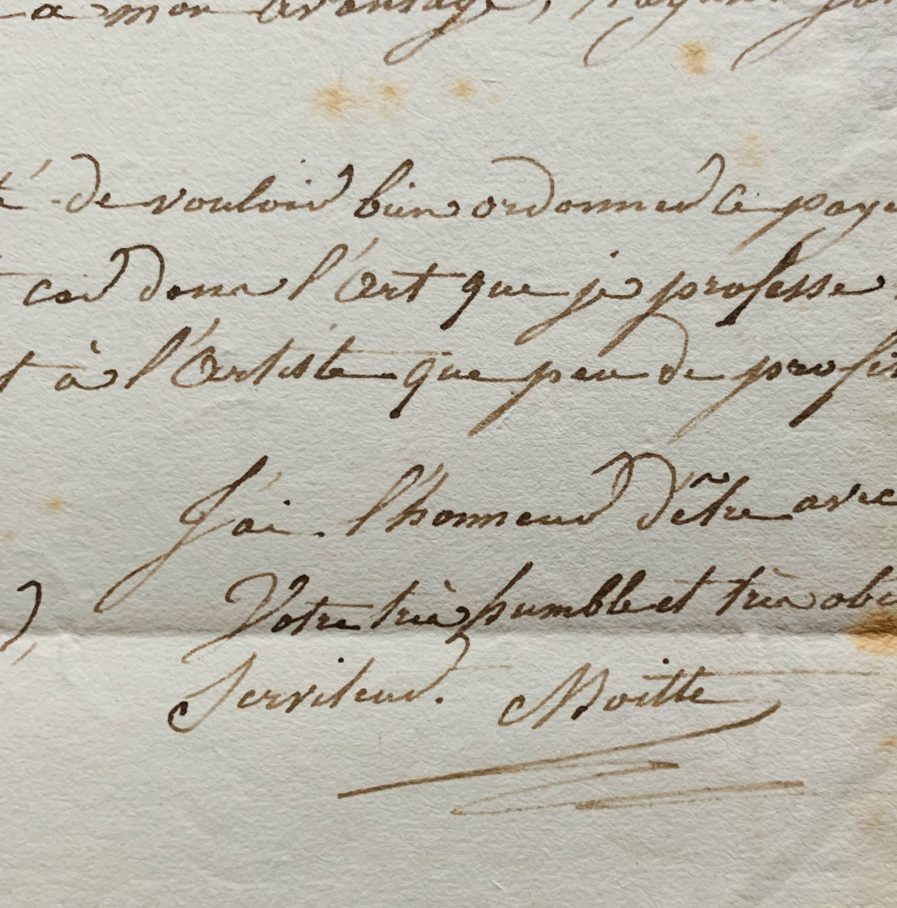 a mon avantage,
té de vouloir bien ordonner ce paye
car dans l'Art que je professe
t à l'Artiste que peu de profit
J'ai l'honneur d'être avec
Votre très humble et très obe
Serviteur. Moitte